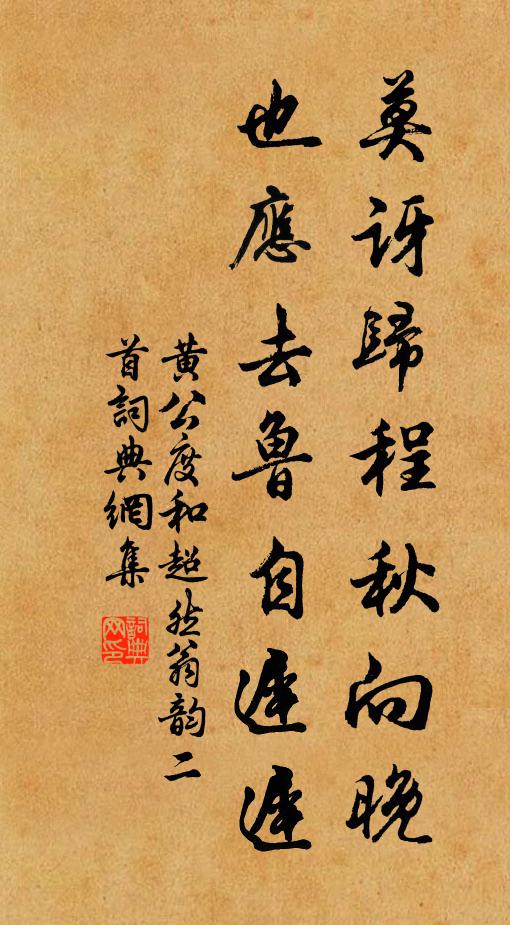 莫訝歸程秋向晚
也應去魯自遲遲
黃公度和超然翁韵二
首詞典網集
詞典网印